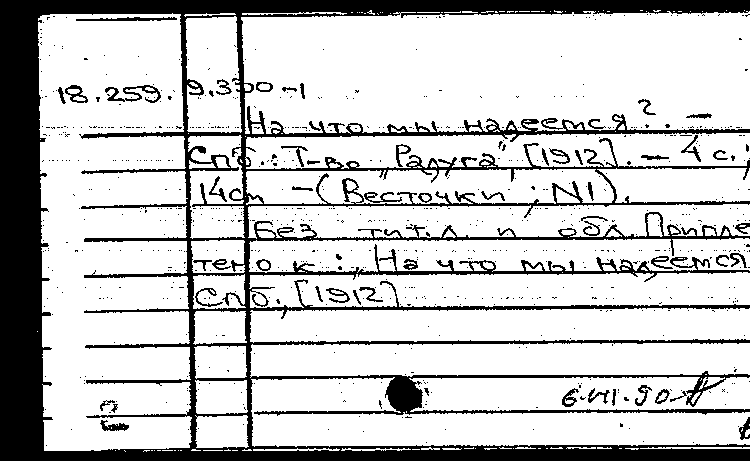 18.259. 9.330-1
На что мы надеемся?. —
Спб.: Т-во „Радуга", [1912]. — 4 с.;
14см — (Весточки; N1).
Без тит.л. и обл. Припле
тено к: „На что мы надеемся
Спб., [1912].
6.VII.90